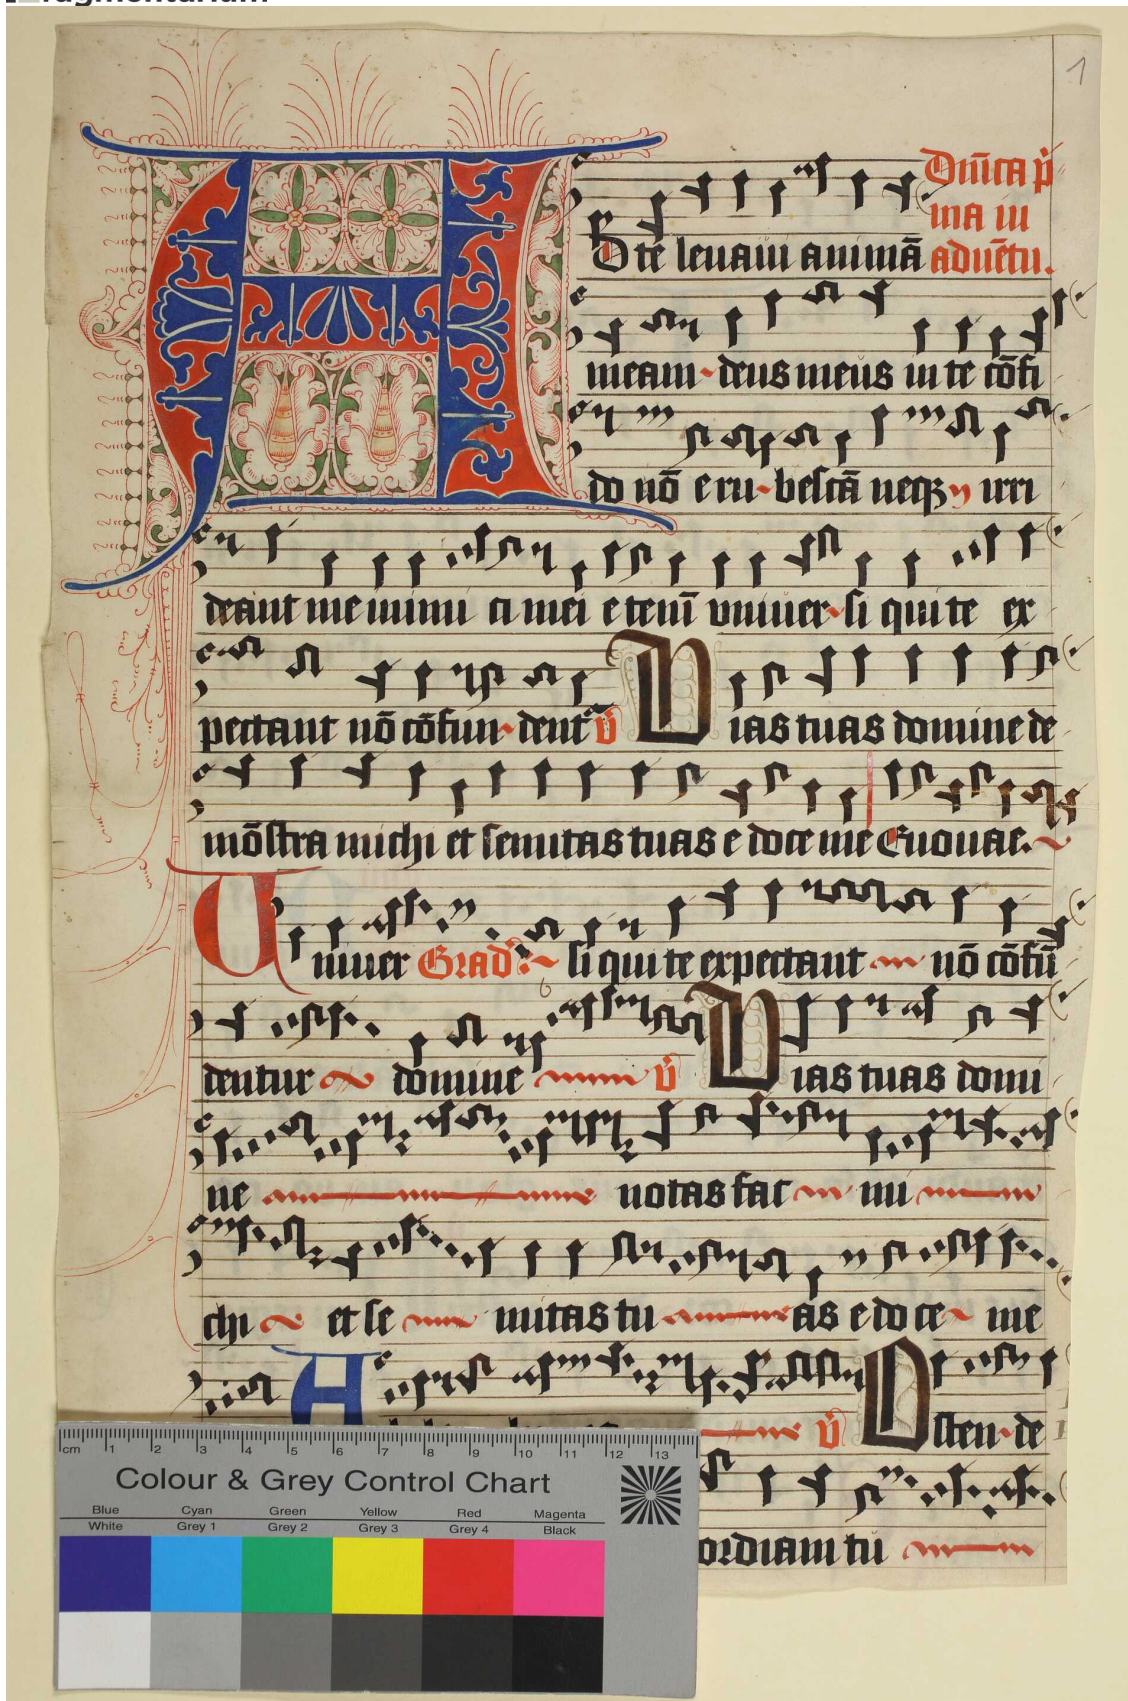 ragmentarium
1
Dn̄ica p̄
ma in
aduētu.
A D te leuaui animā
meam deus meus in te cōfi
do nō erubescā neqꝫ irri
deant me inimi ci mei etenī vniuer si qui te ex
pectant nō cōfun dent℣ Vias tuas domine de
mōstra michi et semitas tuas e doce me Euouae.
Vniuer Grad. si qui te expectant nō cōfū
dentur domine ℣ Vias tuas domi
ne notas fac mi
chi et se mitas tu as e do ce me
A ℣ Osten de
ordiam tu
cm 1 2 3 4 5 6 7 8 9 10 11 12 13
Colour & Grey Control Chart
Blue Cyan Green Yellow Red Magenta
White Grey 1 Grey 2 Grey 3 Grey 4 Black